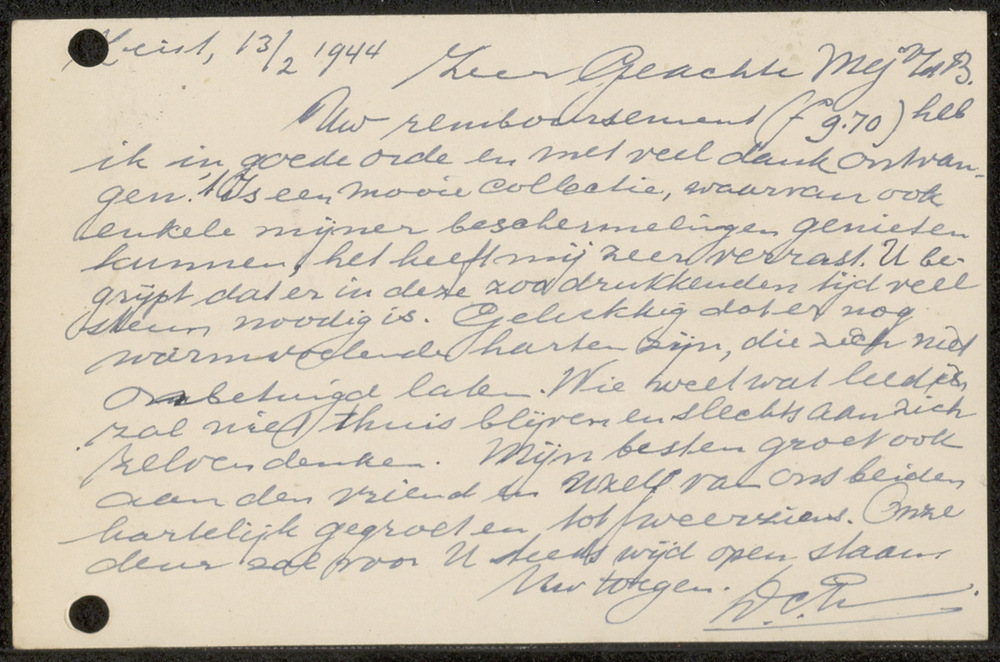 Zeist, 13/2 1944
Zeer Geachte Mej v/d B.
Uw remboursement (f 9.70) heb
ik in goede orde en met veel dank ontvan-
gen. 't Is een mooie collectie, waarvan ook
enkele mijner beschermelingen genieten
kunnen, het heeft mij zeer verrast. U be-
grijpt dat er in deze zoo drukkenden tijd veel
steun noodig is. Gelukkig dat er nog
warmvoelende harten zijn, die zich niet
onbetuigd laten. Wie weet wat leed is,
zal niet thuis blijven en slechts aan zich
zelven denken. Mijn besten groet ook
aan den vriend en Uzelf van ons beiden
hartelijk gegroet en tot weerziens. Onze
deur zal voor U steeds wijd open staan.
Uw toegen.